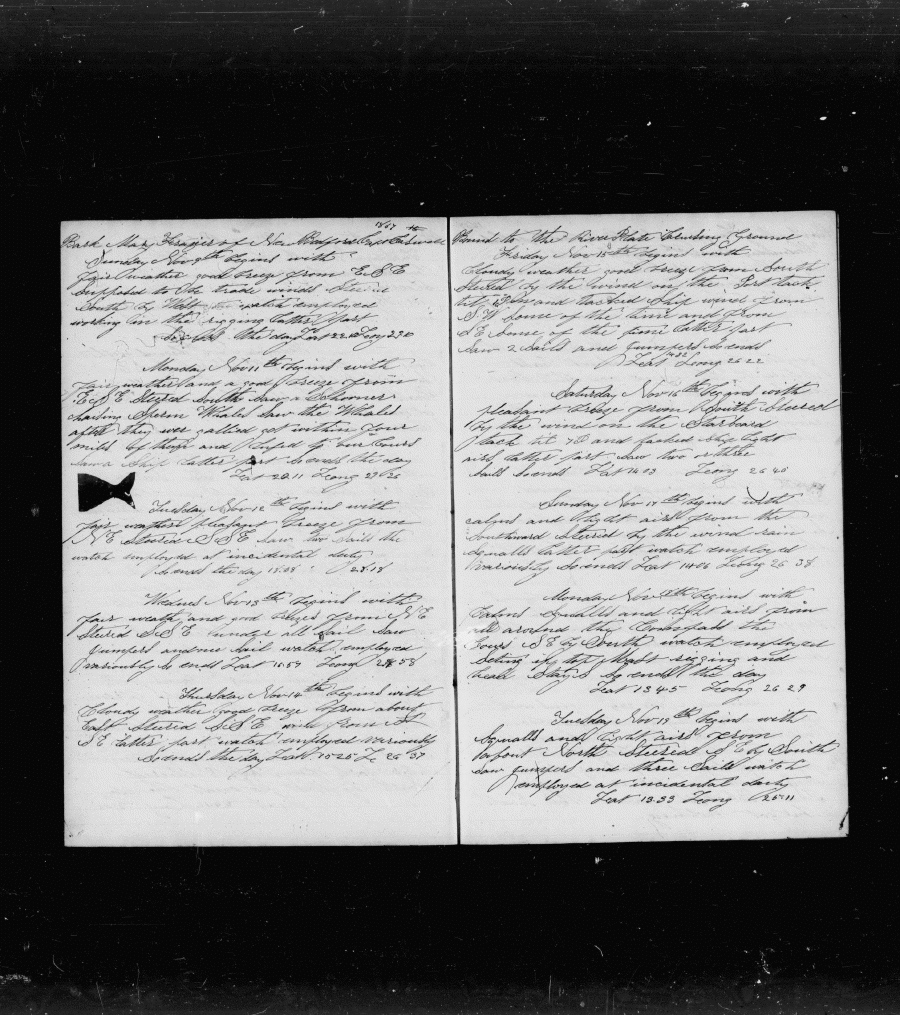 1867
Bark Mary Frazier of New Bedford Capt
Sunday Nov begins with
fair weather good breeze from E.S.E
Supposed to the trade winds
South by West watch employed
working on the rigging latter part
So ends the day Lat 22 20 Long
Monday Nov 11th begins with
fair weather and a good breeze from
E S E Steered South Saw a Schooner
chasing Sperm Whales Saw the Whales
after they wer gallied got within four
mils of them and to our Cours
Saw a Ship latter part So ends the day
Lat 20.11 Long
Tuesday Nov 12th begins with
fair weather pleasant breeze from
N E Steered S S E Saw two Sails the
watch employed at incidental duty
So ends the day 18.08 28.18
Wednes Nov 13th begins with
fair weath and good breezes from N E
Sterd S S E under all Sail Saw
Jumpers and one Sail watch employed
variously So ends Lat Long
Thursday Nov 14th begins with
Cloudy weather good breeze from about
East Steered S.S.E wind from
S E latter part watch employed variously
So ends the day Lat 15 25 26 37
Bound to the River Plate Cruising Ground
Friday Nov 15th begins with
Cloudy weather good breeze from South
Steered by the wind on the Port tack
till and tacked Ship wind from
S W Some of the time and from
S E Some of the time latter part
Saw 2 Sails and Jumpers So ends
Lat Long 26 22
Saturday Nov 16th begins with
pleasant breeze from South Steered
by the wind on the Starboard
tack til and tacked Ship light
airs latter part Saw two or three
Sails So ends Lat 14 03 Long 26 40
Sunday Nov 17th begins with
calms and light airs from the
Southward Steered by the wind rain
Squalls latter part watch employed
variously So ends Lat 14 06 Long 26 38
Monday Nov 18th begins with
Calms Squalls and light airs from
all around the Compass the
Cours S E by South watch employed
Seting up top Mast rigging and
head Stays So ends the day
Lat 13 45 Long 26 29
Tuesday Nov 19th begins with
Squalls and light airs from
about North Steered S E by South
Saw Jumpers and three Sails watch
employed at incidental duty
Lat 13.33 Long 26-11